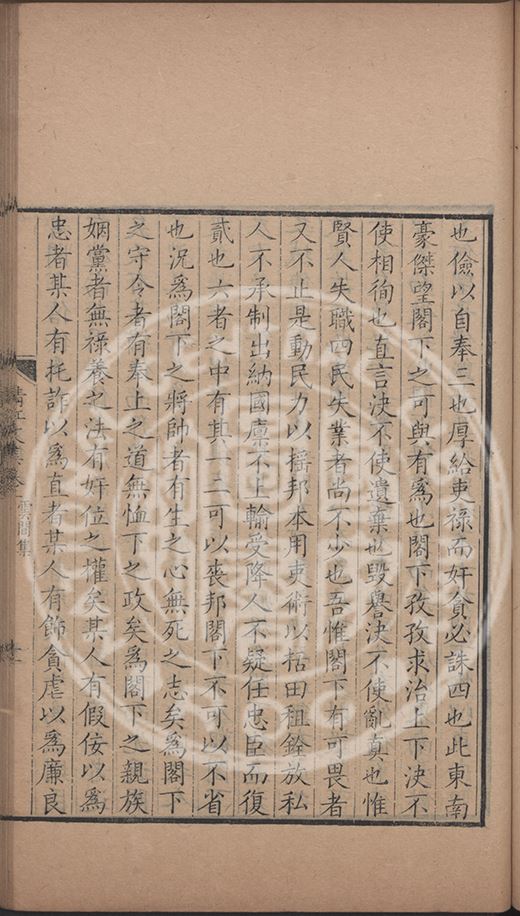 也儉以自奉三也厚給吏祿而奸貪必誅四也此東南
豪傑望閣下之可與有爲也閣下孜孜求治上下決不
使相徇也直言決不使遺棄也毀譽決不使亂真也惟
賢人失職四民失業者尚不少也吾惟閣下有可畏者
又不止是動民力以搖邦本用吏術以括田租銓放私
人不承制出納國廪不上輸受降人不疑任忠臣而復
貳也六者之中有其一二可以喪邦閣下不可以不省
也況爲閣下之將帥者有生之心無死之志矣爲閣下
之守令者有奉上之道無恤下之政矣爲閣下之親族
姻黨者無祿養之法有奸位之權矣某人有假佞以爲
忠者某人有托詐以爲直者某人有飾貪虐以爲廉良
雲間集